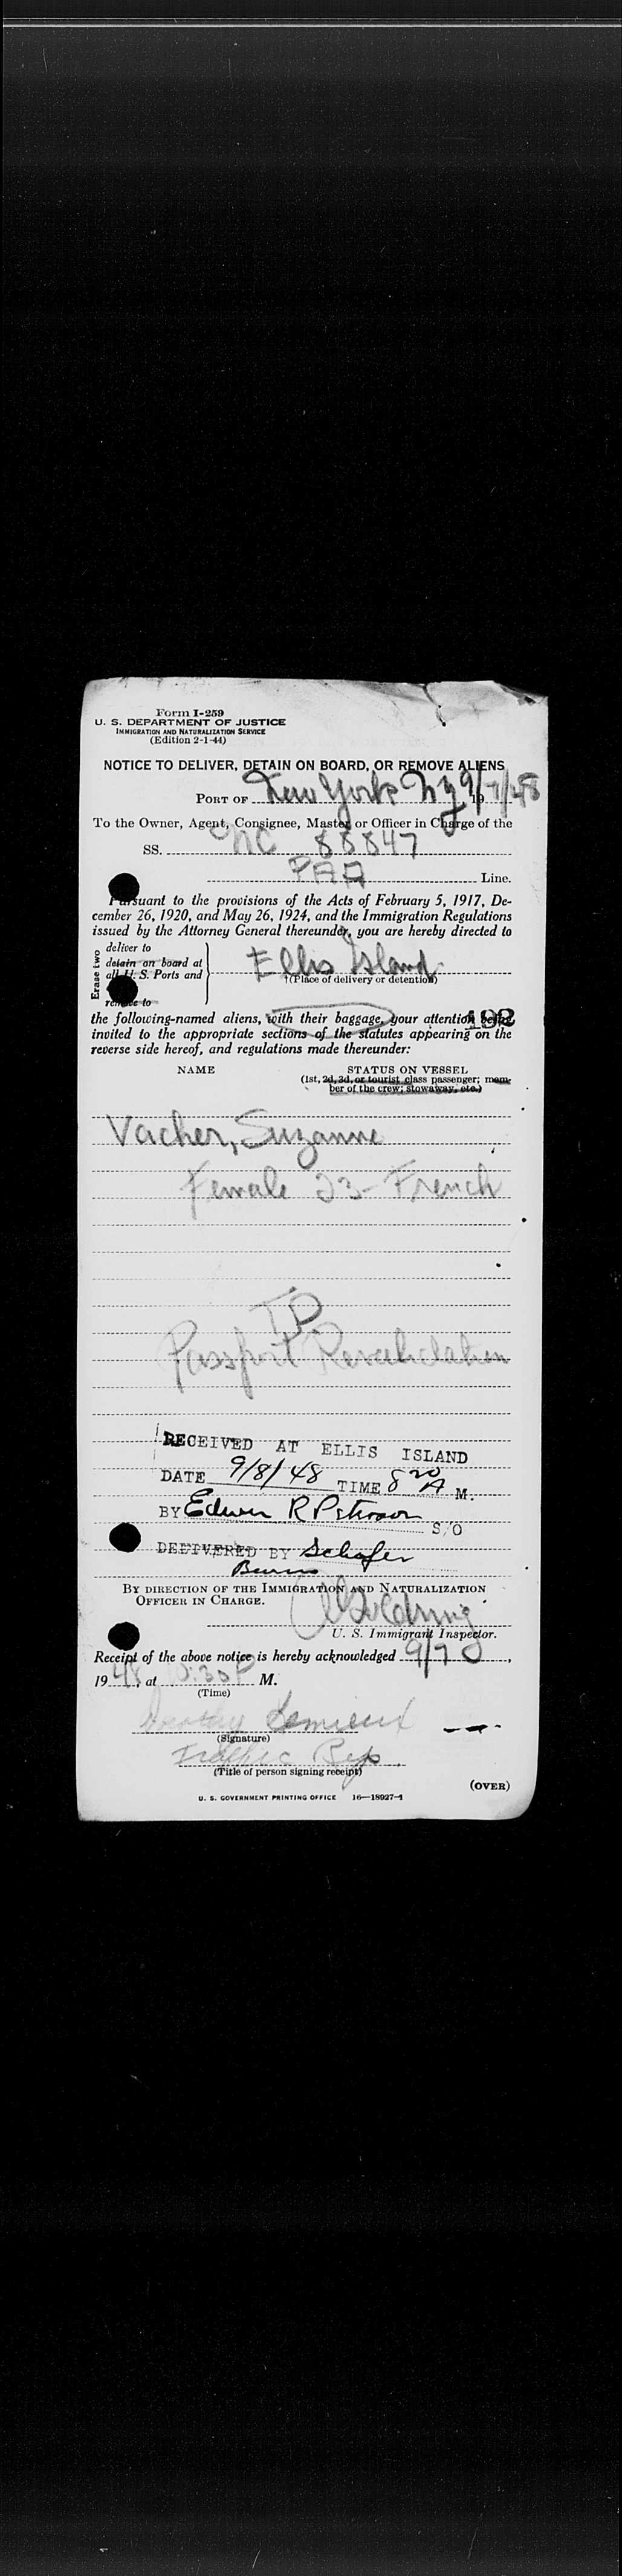 Form I-259
U. S. DEPARTMENT OF JUSTICE
IMMIGRATION AND NATURALIZATION SERVICE
(Edition 2-1-44)
NOTICE TO DELIVER, DETAIN ON BOARD, OR REMOVE ALIENS
PORT OF New York NY 9/7/48
19
To the Owner, Agent, Consignee, Master or Officer in Charge of the
SS. NC 88847
PAA Line.
Pursuant to the provisions of the Acts of February 5, 1917, De-
cember 26, 1920, and May 26, 1924, and the Immigration Regulations
issued by the Attorney General thereunder, you are hereby directed to
Erase two
deliver to
detain on board at
all U. S. Ports and
remove to
Ellis Island
(Place of delivery or detention)
the following-named aliens, with their baggage, your attention being
192
invited to the appropriate sections of the statutes appearing on the
reverse side hereof, and regulations made thereunder:
NAME STATUS ON VESSEL
(1st, 2d, 3d, or tourist class passenger; mem-
ber of the crew; stowaway, etc.)
Vacher, Suzanne
Female 23 - French
T.D.
Passport Revalidation
RECEIVED AT ELLIS ISLAND
DATE 9/8/48 TIME 8 20 A M.
BY Edwin R Peterson S/O
DELIVERED BY Schafer
Burns
BY DIRECTION OF THE IMMIGRATION AND NATURALIZATION
OFFICER IN CHARGE.
U. S. Immigrant Inspector.
Receipt of the above notice is hereby acknowledged 9/7,
1948, at M.
(Time)
Lemieux
(Signature)
Traffic Rep.
(Title of person signing receipt)
(OVER)
U. S. GOVERNMENT PRINTING OFFICE 16—18927-1